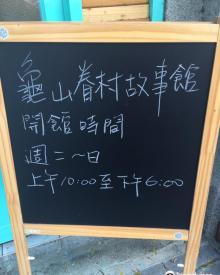 龜山眷村故事館
開館時間
週二～日
上午10:00至下午6:00